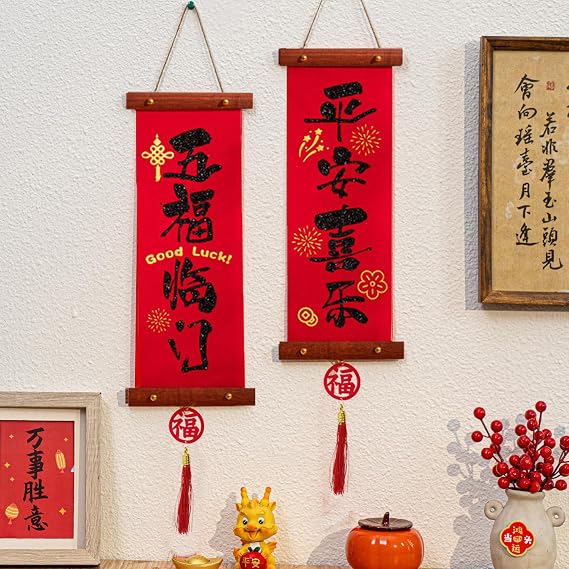 五福临门
Good Luck!
福
平安喜乐
福
若非羣玉山頭見
會向瑶臺月下逢
万事胜意
鸿
当头
運